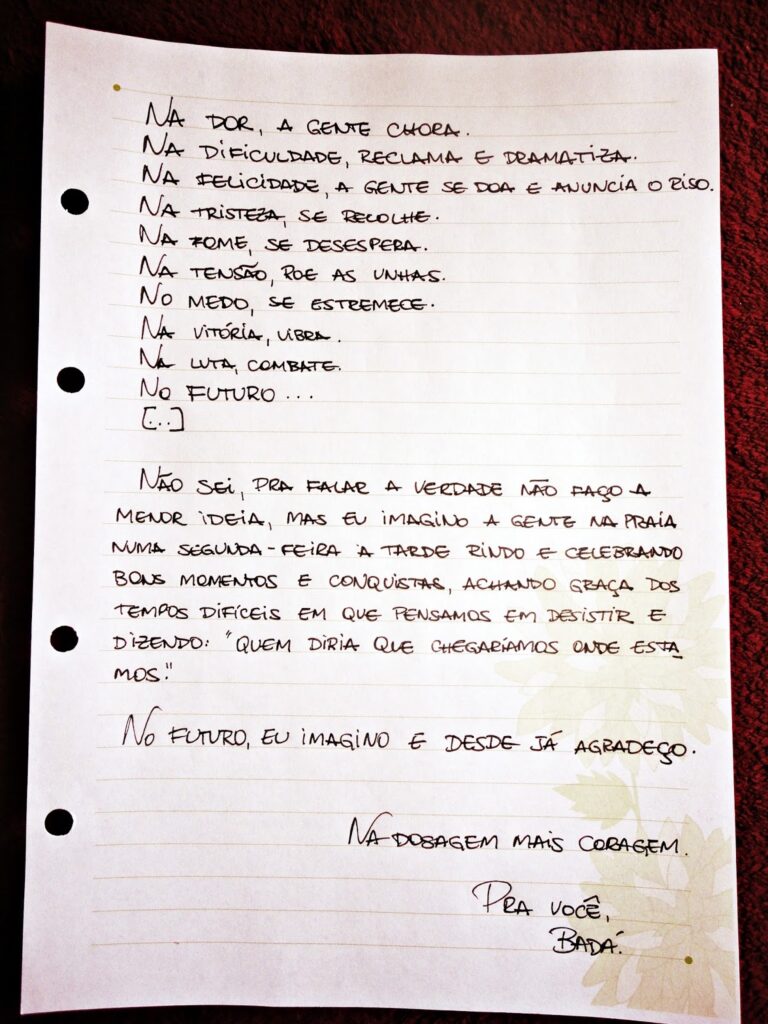 NA DOR, A GENTE CHORA.
NA DIFICULDADE, RECLAMA E DRAMATIZA.
NA FELICIDADE, A GENTE SE DOA E ANUNCIA O RISO.
NA TRISTEZA, SE RECOLHE.
NA FOME, SE DESESPERA.
NA TENSÃO, ROE AS UNHAS.
NO MEDO, SE ESTREMECE.
NA VITÓRIA, VIBRA.
NA LUTA, COMBATE.
NO FUTURO ...
[...]
NÃO SEI, PRA FALAR A VERDADE NÃO FAÇO A
MENOR IDEIA, MAS EU IMAGINO A GENTE NA PRAIA
NUMA SEGUNDA-FEIRA À TARDE RINDO E CELEBRANDO
BONS MOMENTOS E CONQUISTAS, ACHANDO GRAÇA DOS
TEMPOS DIFÍCEIS EM QUE PENSAMOS EM DESISTIR E
DIZENDO: "QUEM DIRIA QUE CHEGARÍAMOS ONDE ESTA
MOS."
NO FUTURO, EU IMAGINO E DESDE JÁ AGRADEÇO.
NA DOSAGEM MAIS CORAGEM.
PRA VOCÊ,
BADÁ.